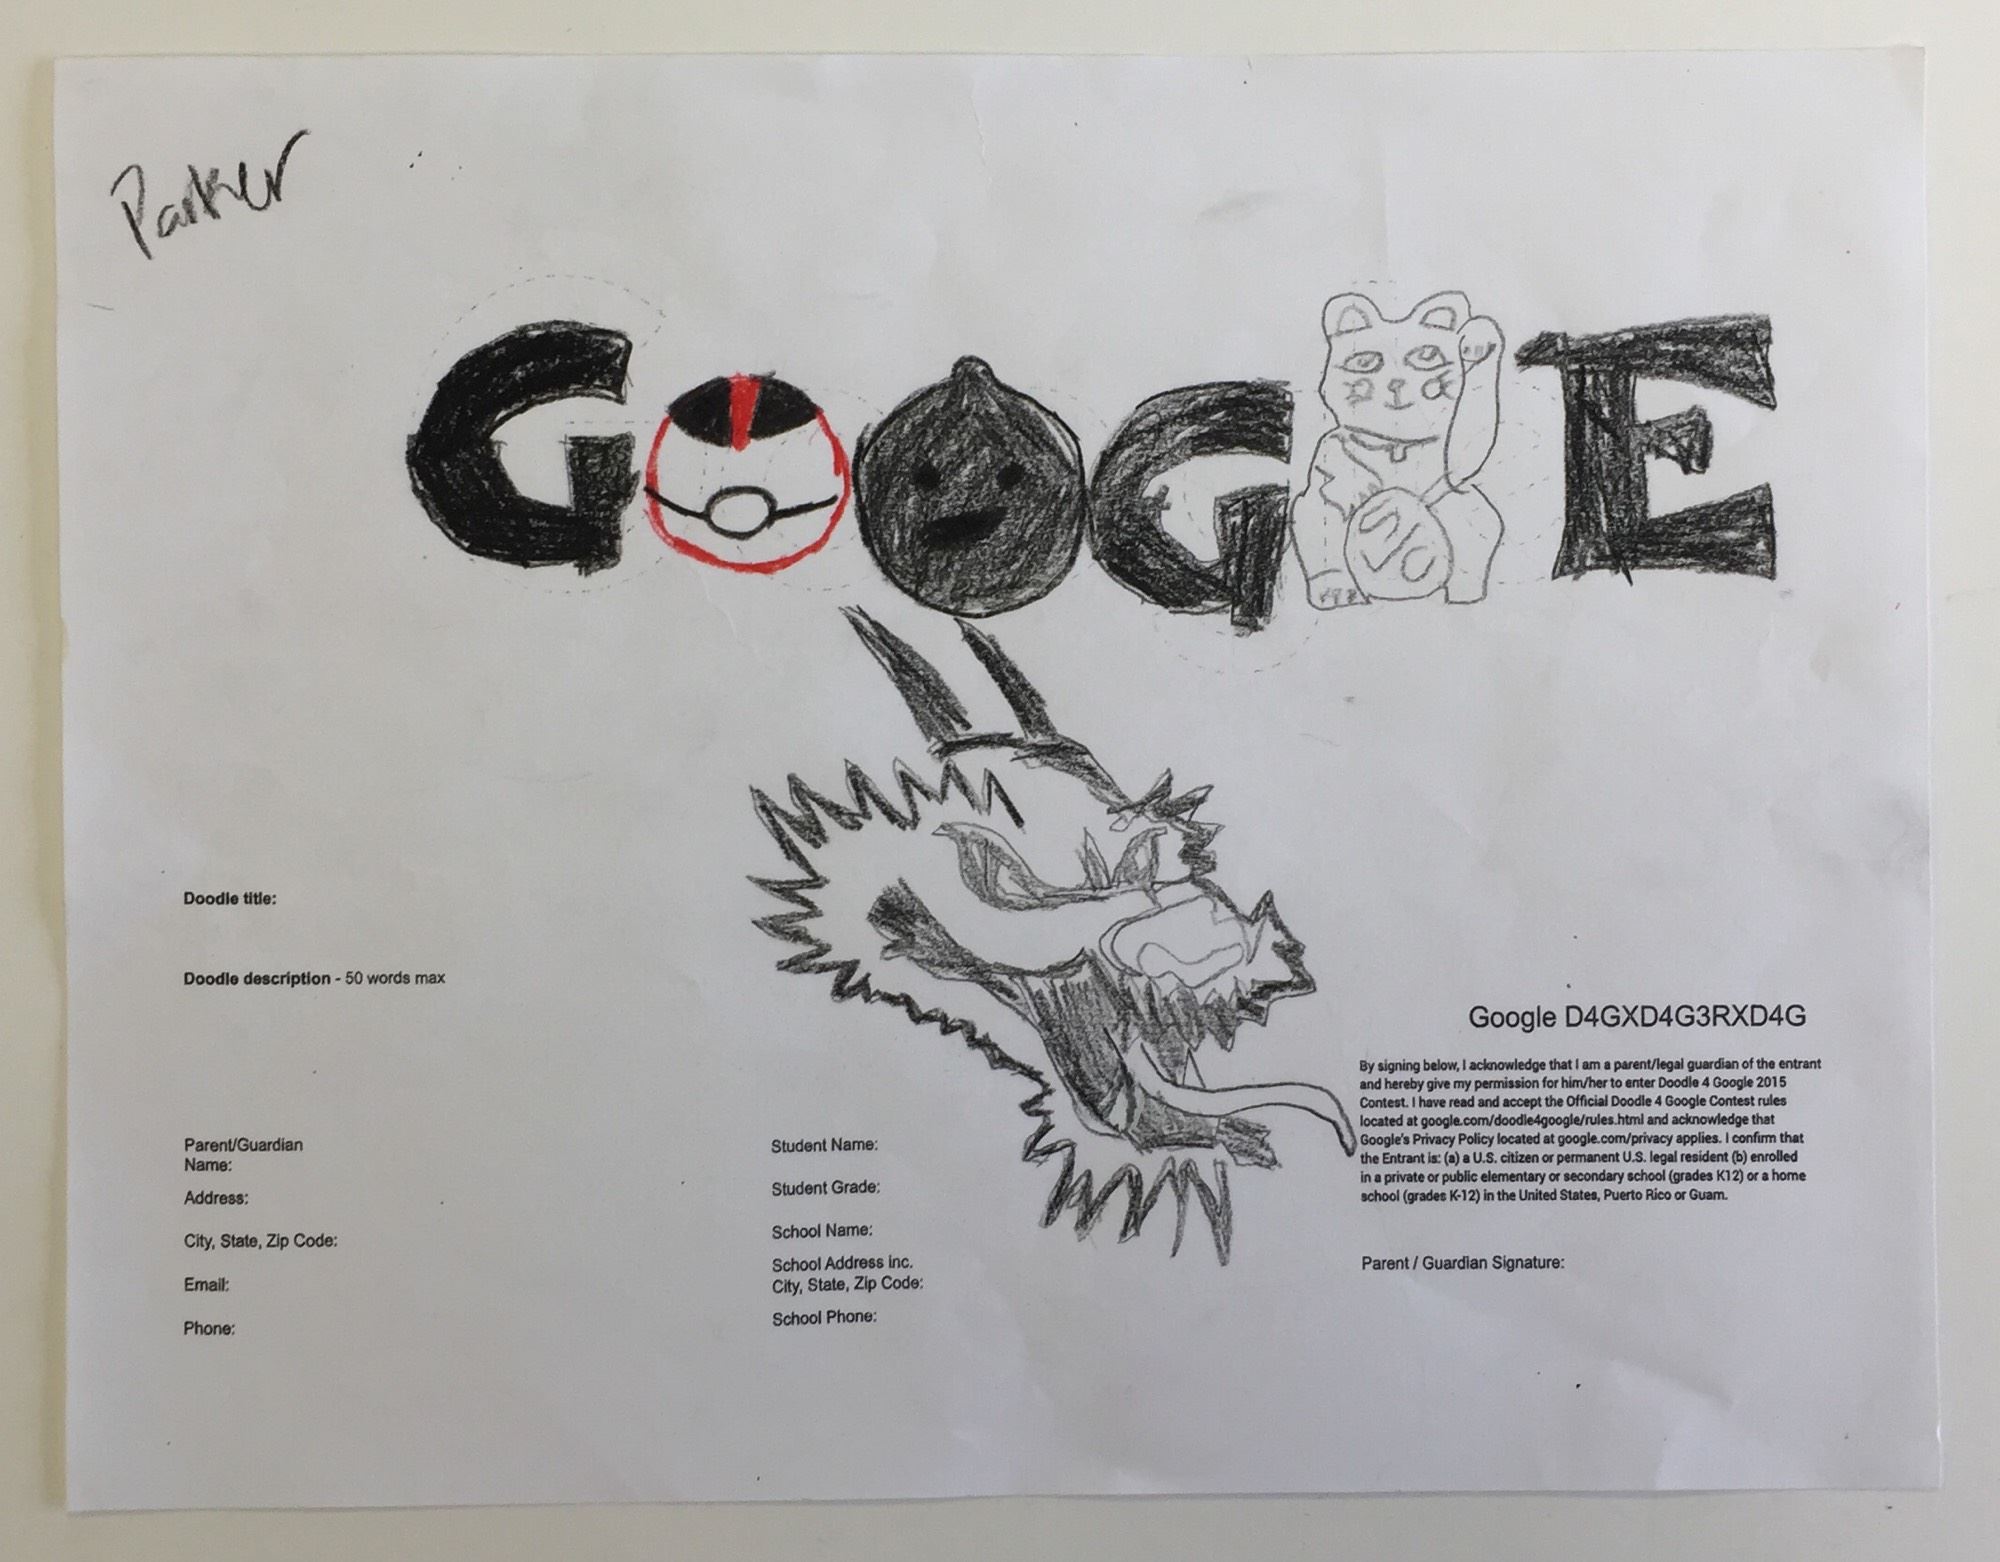 Parker
GOOGLE
Doodle title:
Doodle description - 50 words max
Google D4GXD4G3RXD4G
By signing below, I acknowledge that I am a parent/legal guardian of the entrant
and hereby give my permission for him/her to enter Doodle 4 Google 2015
Contest. I have read and accept the Official Doodle 4 Google Contest rules
located at google.com/doodle4google/rules.html and acknowledge that
Google's Privacy Policy located at google.com/privacy applies. I confirm that
the Entrant is: (a) a U.S. citizen or permanent U.S. legal resident (b) enrolled
in a private or public elementary or secondary school (grades K12) or a home
school (grades K-12) in the United States, Puerto Rico or Guam.
Parent/Guardian
Name:
Address:
City, State, Zip Code:
Email:
Phone:
Student Name:
Student Grade:
School Name:
School Address inc.
City, State, Zip Code:
School Phone:
Parent / Guardian Signature: